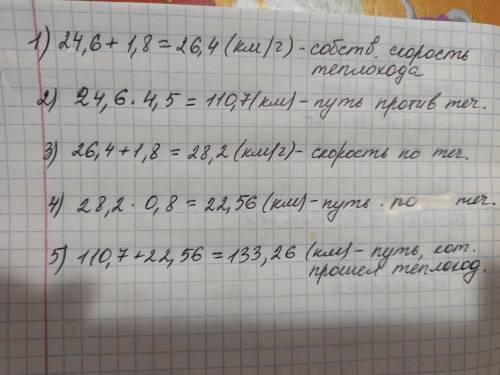 1) 24,6 + 1,8 = 26,4 (км/ч) - собств. скорость
теплохода
2) 24,6 · 4,5 = 110,7 (км) - путь против теч.
3) 26,4 + 1,8 = 28,2 (км/ч) - скорость по теч.
4) 28,2 · 0,8 = 22,56 (км) - путь по теч.
5) 110,7 + 22,56 = 133,26 (км) - путь, кот.
прошел теплоход.